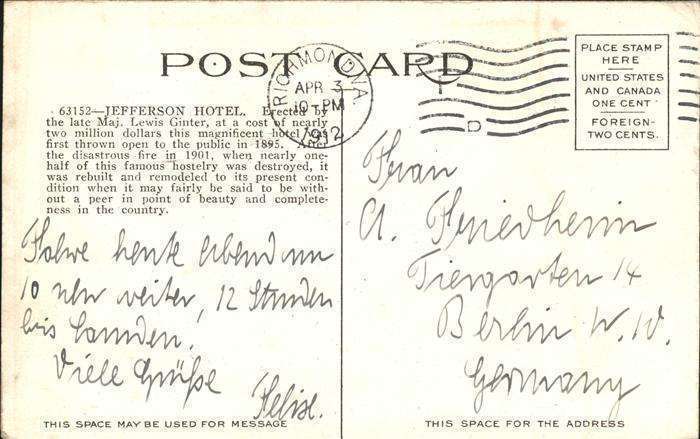 POST CARD
RICHMOND, VA.
APR 3
10-PM
1912
D
PLACE STAMP
HERE
UNITED STATES
AND CANADA
ONE CENT
FOREIGN-
TWO CENTS.
63152—JEFFERSON HOTEL. Erected by
the late Maj. Lewis Ginter, at a cost of nearly
two million dollars this magnificent hotel was
first thrown open to the public in 1895. After
the disastrous fire in 1901, when nearly one-
half of this famous hostelry was destroyed, it
was rebuilt and remodeled to its present con-
dition when it may fairly be said to be with-
out a peer in point of beauty and complete-
ness in the country.
Fahre heute Abend um
10 Uhr weiter, 12 Stunden
bis Camden.
Viele Grüße
Felix.
Frau
A. Friedheim
Tiergarten 14
Berlin W. W.
Germany
THIS SPACE MAY BE USED FOR MESSAGE
THIS SPACE FOR THE ADDRESS